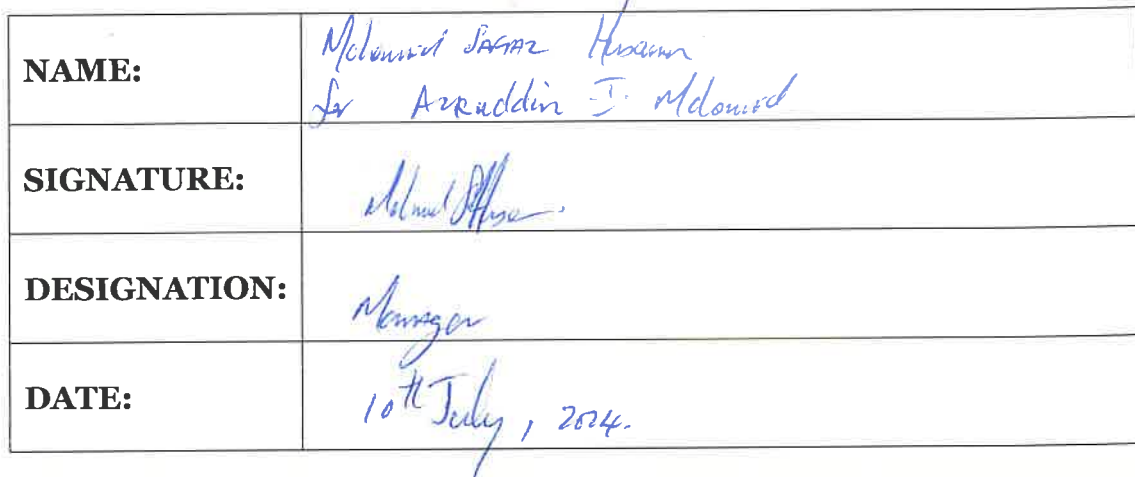 NAME:
Mohamed Safraz Hussain
for Azruddin I. Mohamed
SIGNATURE:
DESIGNATION:
Manager
DATE:
10th July, 2024.